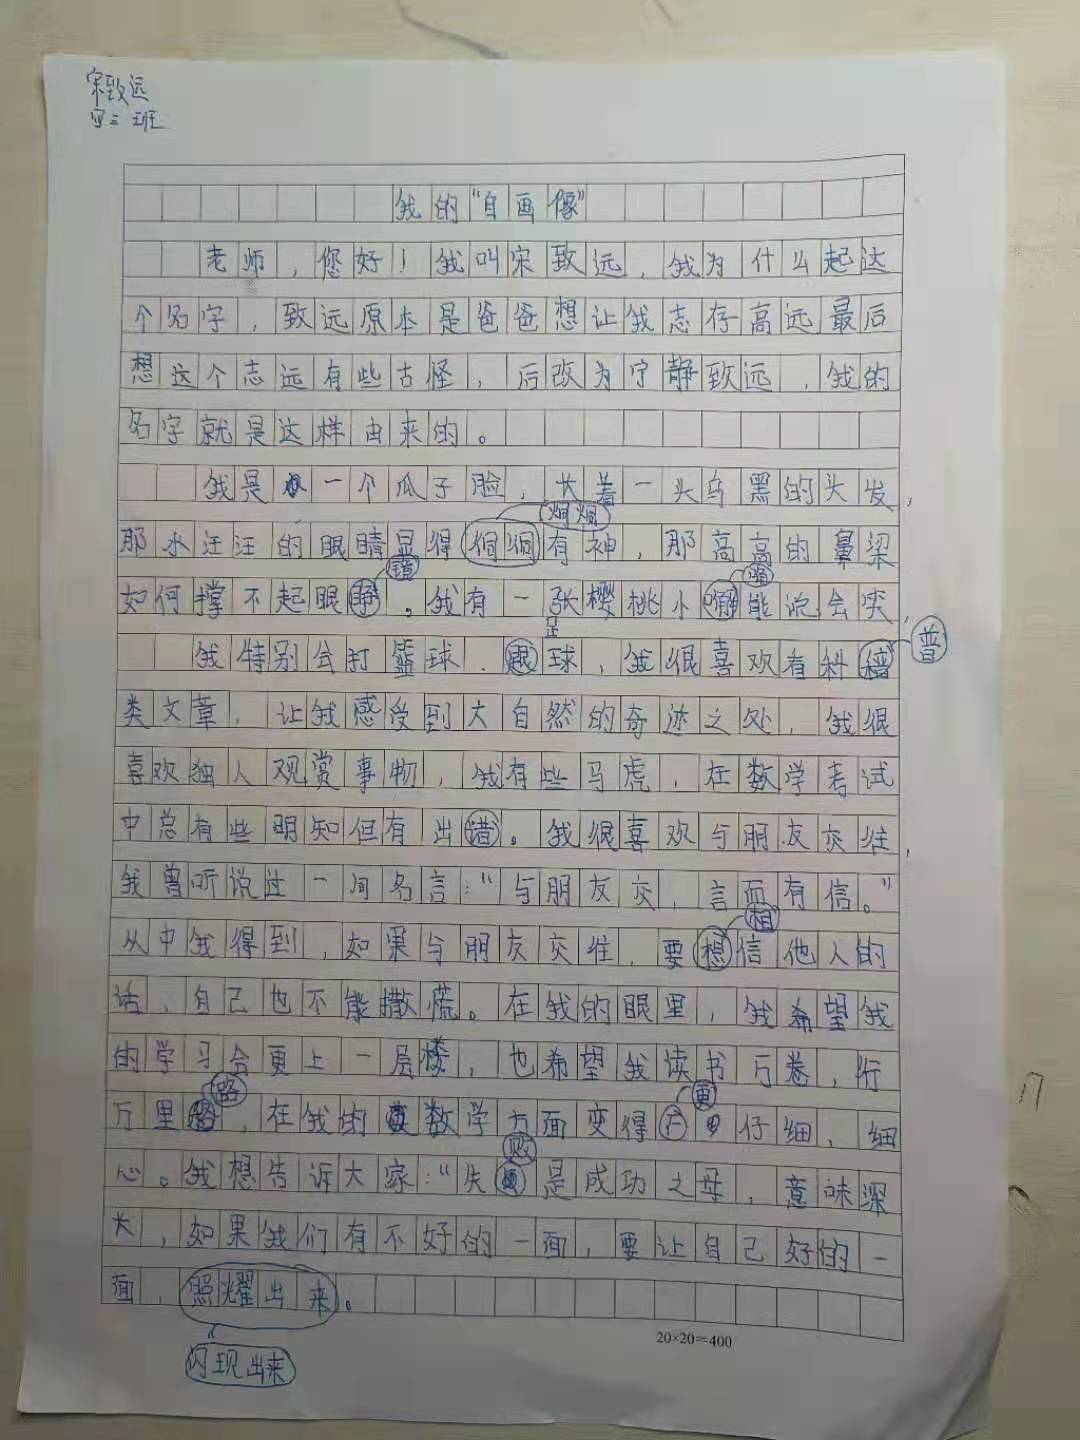 宋致远
四三班
我的“自画像”
老师，您好！我叫宋致远，我为什么起这
个名字，致远原本是爸爸想让我志存高远最后
想这个志远有些古怪，后改为宁静致远，我的
名字就是这样由来的。
我是一个瓜子脸，长着一头乌黑的头发，
炯炯
那水汪汪的眼睛显得侗侗有神，那高高的鼻梁
如何撑不起眼睁。我有一张樱桃小嘴能说会笑，
足
我特别会打篮球、球，我很喜欢看科
普
类文章，让我感受到大自然的奇迹之处，我很
喜欢独人观赏事物，我有些马虎，在数学考试
中总有些明知但有出错。我很喜欢与朋友交往，
我曾听说过一句名言：“与朋友交，言而有信。”
相
从中我得到，如果与朋友交往，要想信他人的
话，自己也不能撒慌。在我的眼里，我希望我
的学习会更上一层楼，也希望我读书万卷，行
路 更
万里，在我的数学方面变得仔细、细
败
心。我想告诉大家：“失是成功之母，意味深
长，如果我们有不好的一面，要让自己好的一
面，照耀出来。
闪现出来
20×20=400